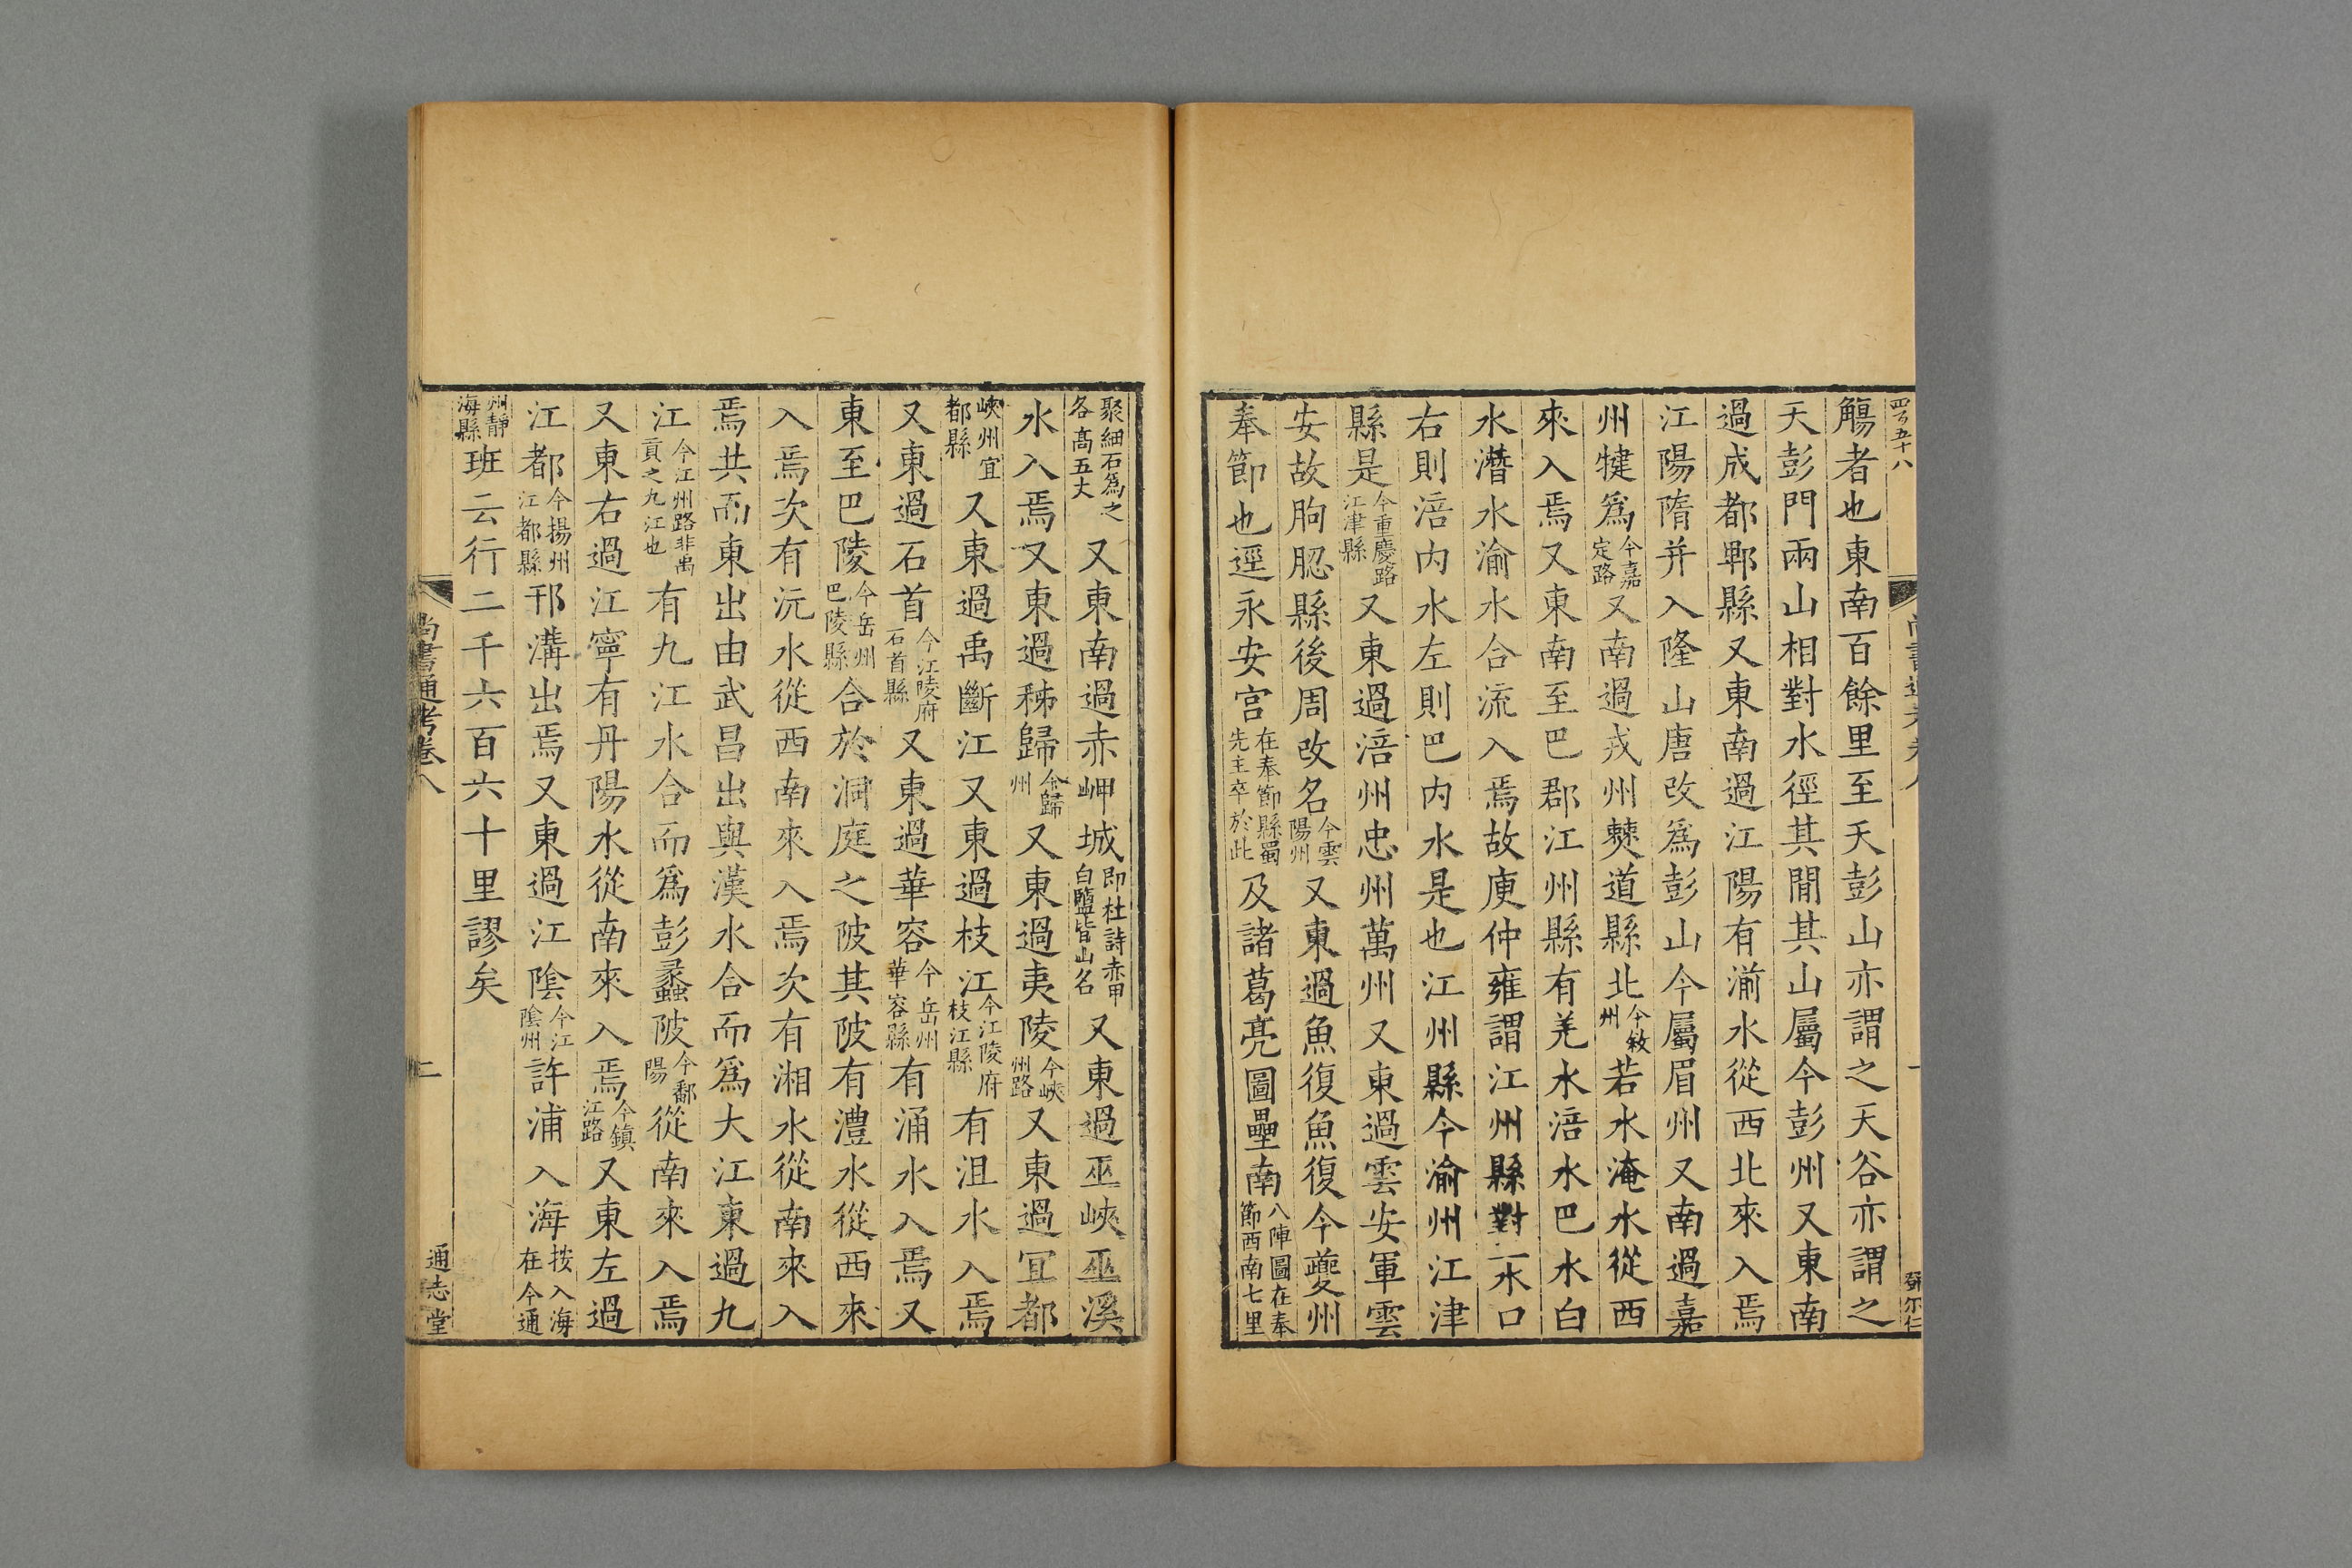 四百五十八
觴者也東南百餘里至天彭山亦謂之天谷亦謂之
天彭門兩山相對水徑其閒其山屬今彭州又東南
過成都郫縣又東南過江陽有湔水從西北來入焉
江陽隋并入隆山唐改爲彭山今屬眉州又南過嘉
州犍爲今嘉定路又南過戎州僰道縣北今敘州若水淹水從西
來入焉又東南至巴郡江州縣有羌水涪水巴水白
水潛水渝水合流入焉故庾仲雍謂江州縣對二水口
右則涪內水左則巴內水是也江州縣今渝州江津
縣是今重慶路江津縣又東過涪州忠州萬州又東過雲安軍雲
安故朐䏰縣後周改名今雲陽州又東過魚復魚復今夔州
奉節也逕永安宮在奉節縣蜀先主卒於此及諸葛亮圖壘南八陣圖在奉節西南七里
聚細石爲之各高五丈又東南過赤岬城即杜詩赤甲白鹽皆山名又東過巫峽巫溪
水入焉又東過秭歸今歸州又東過夷陵今峽州路又東過宜都
峽州宜都縣又東過禹斷江又東過枝江今江陵府枝江縣有沮水入焉
又東過石首今江陵府石首縣又東過華容今岳州華容縣有涌水入焉又
東至巴陵今岳州巴陵縣合於洞庭之陂其陂有澧水從西來
入焉次有沅水從西南來入焉次有湘水從南來入
焉共而東出由武昌出與漢水合而爲大江東過九
江今江州路非禹貢之九江也有九江水合而爲彭蠡陂今鄱陽從南來入焉
又東右過江寧有丹陽水從南來入焉今鎮江路又東左過
江都今揚州江都縣邗溝出焉又東過江陰今江陰州許浦入海按入海在今通
州靜海縣班云行二千六百六十里謬矣
尚書通考卷八
二
通志堂